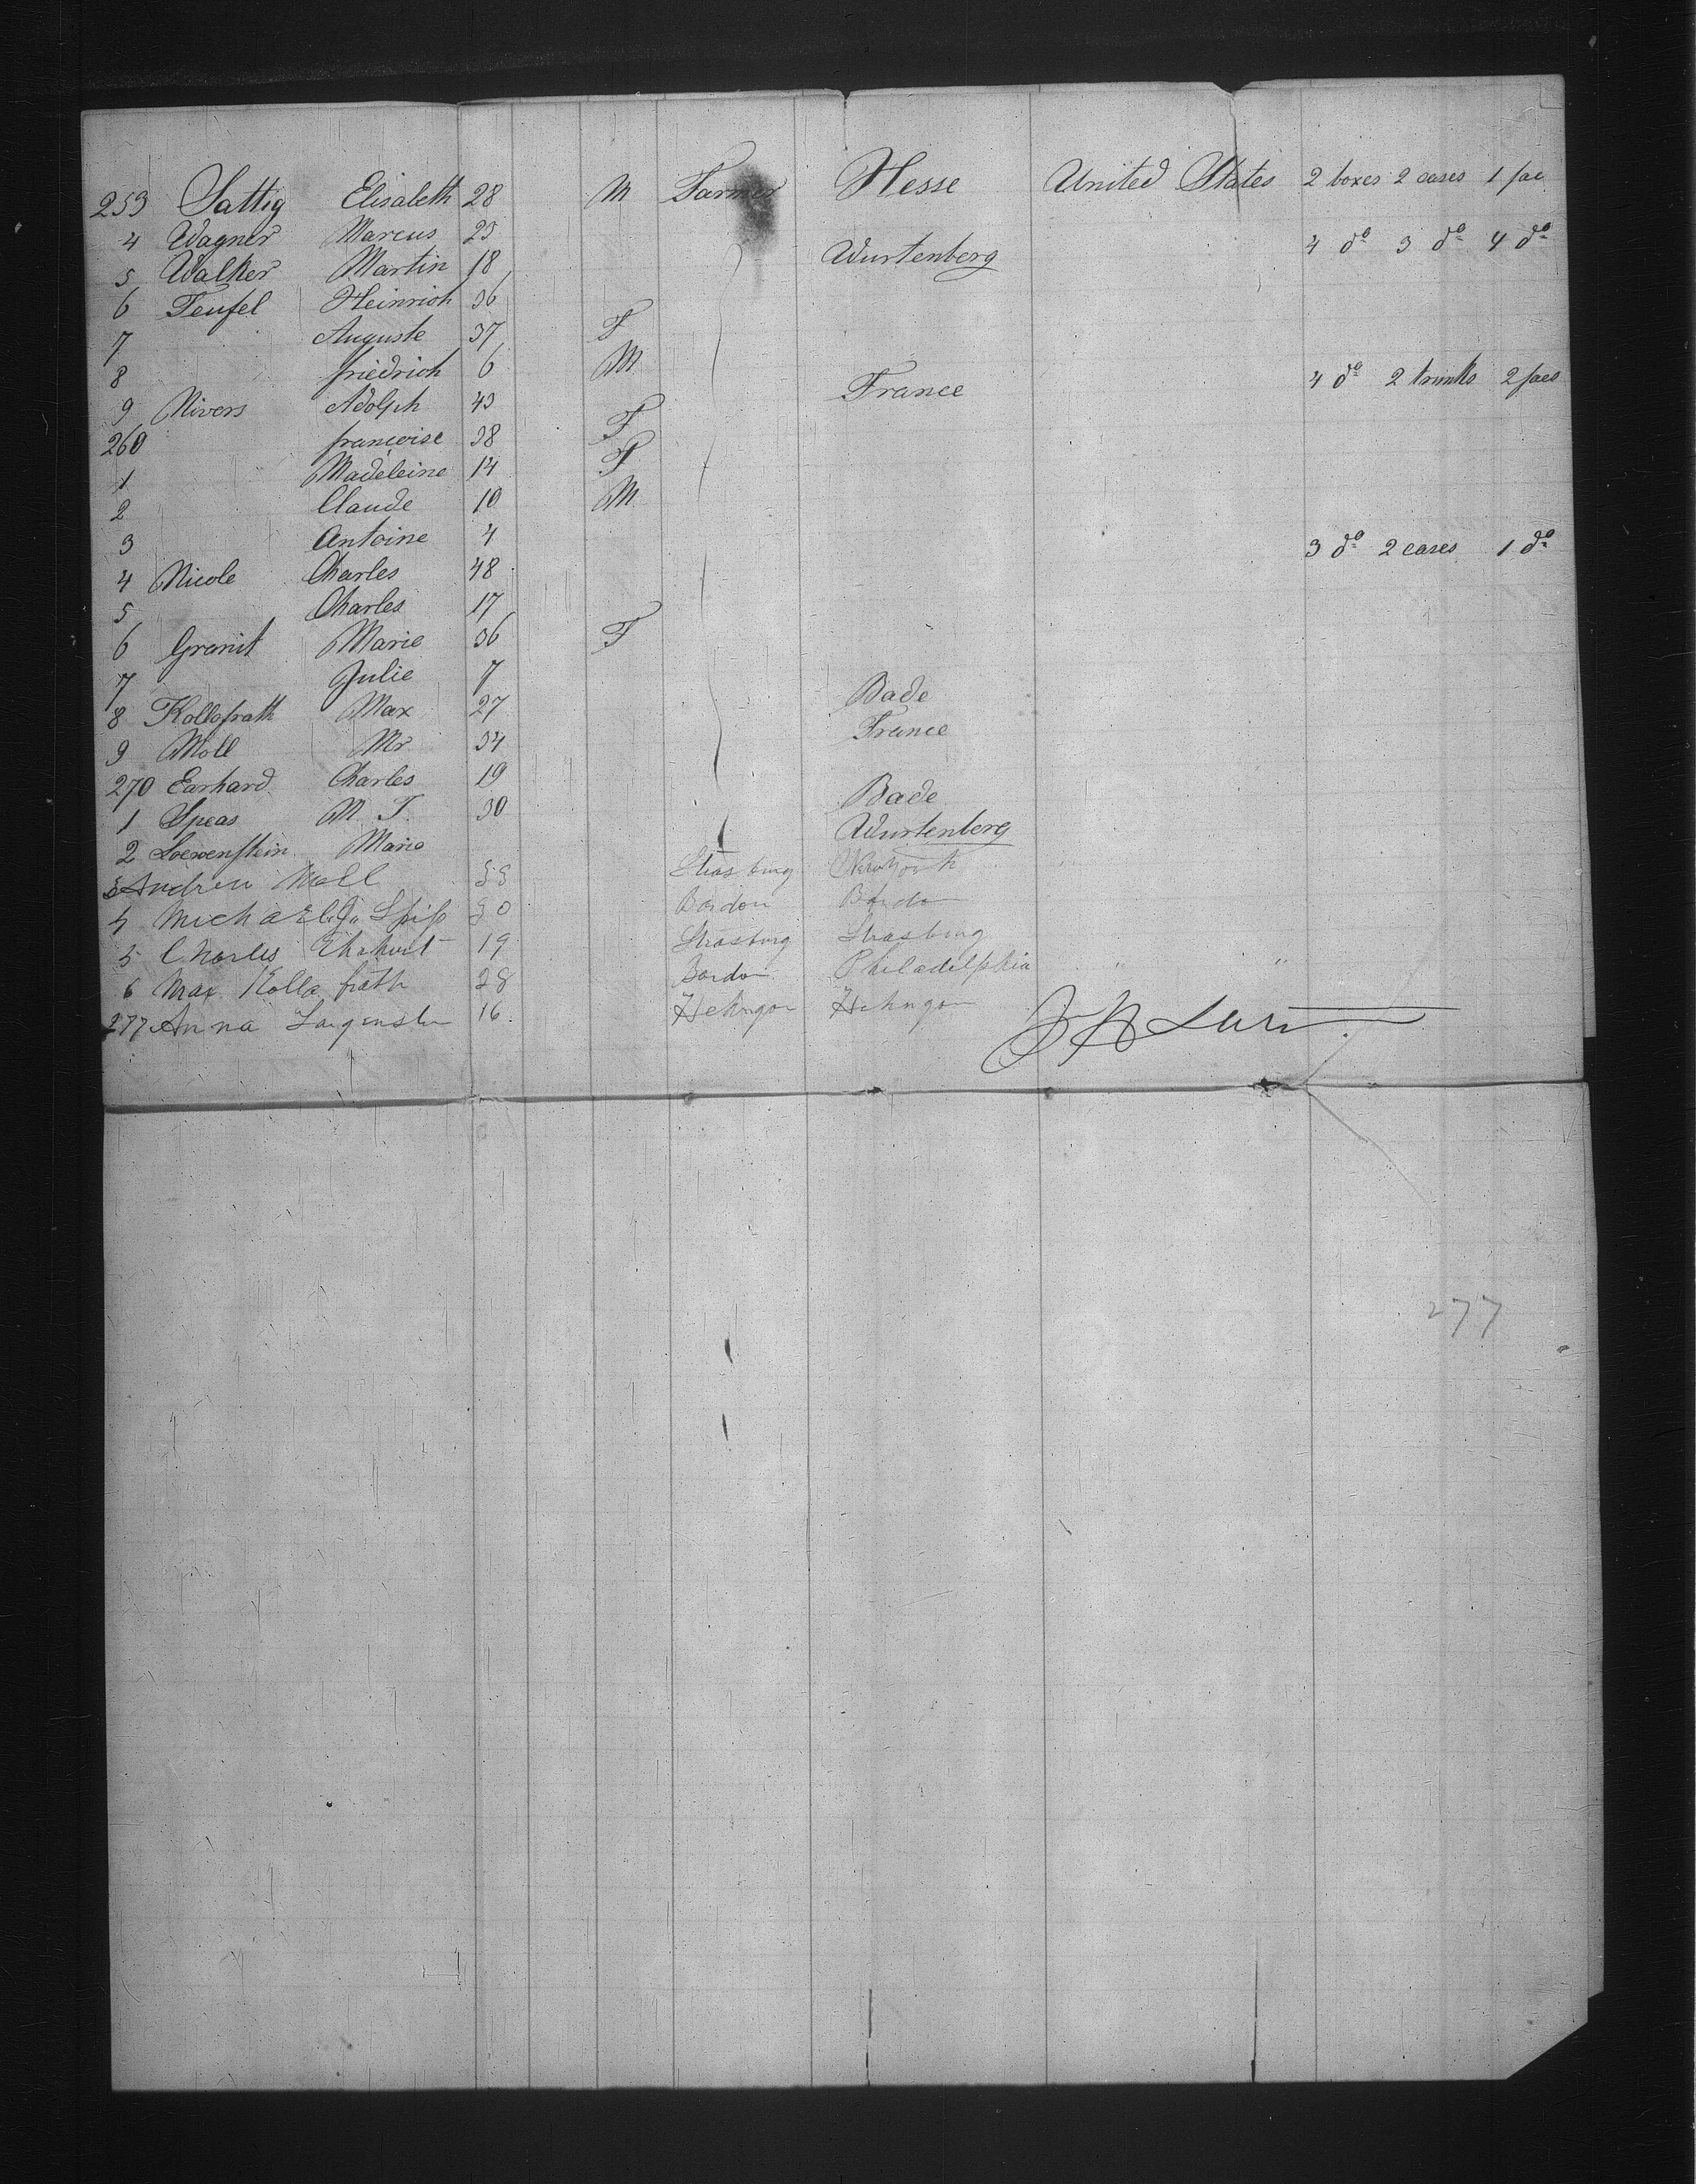 253 Sattig Elisabeth 28 M Farmer Hesse United States 2 boxes 2 cases 1 pac
4 Wagner Marcus 23 4 do 3 do 4 do
5 Walker Martin 18 Wurtenberg
6 Teufel Heinrich 36
7 Auguste 37 F
8 friedrich 6 M
9 Nivers Adolph 43 France 4 do 2 trunks 2 pacs
260 françoise 38 F
1 Madeleine 14 F
2 Claude 10 M
3 Antoine 4
4 Nicole Charles 48 3 do 2 cases 1 do
5 Charles 17
6 Granit Marie 36 F
7 Julie 7
8 Kollofrath Max 27 Bade
9 Moll Mr 34 France
270 Earhard Charles 19
1 Speas M T. 30 Bade
2 Loewenstein Marie Wurtenberg
3 Andrew Moll 35 Strasburg New York
4 Michael Spiss 30 Bordon Bordon
5 Charles Ehrhart 19 Strasburg Strasburg
6 Max Kolla frath 28 Bordon Philadelphia " "
277 Anna 16 Hehngon Hehngon
277